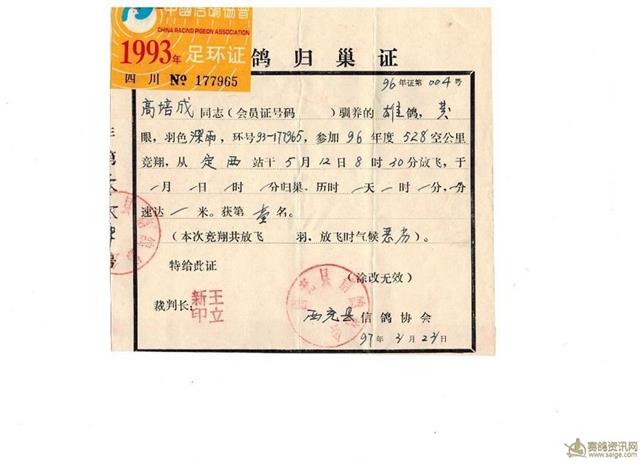 中国信鸽协会
CHINA RACING PIGEON ASSOCIATION
1993年 足环证
四川 № 177965
鸽归巢证
96年证第004号
高培成同志（会员证号码　　）驯养的雄鸽，黄
眼，羽色深雨，环号93-177965，参加96年度528空公里
竞翔，从定西站于5月12日8时30分放飞，于
/月/日/时/分归巢。历时/天/时/分，分
速达/米。获第壹名。
（本次竞翔共放飞　　羽，放飞时气候恶劣）。
特给此证
（涂改无效）
裁判长：
新王
印立
西充县信鸽协会
97年3月23日
赛鸽资讯网
www.saige.com